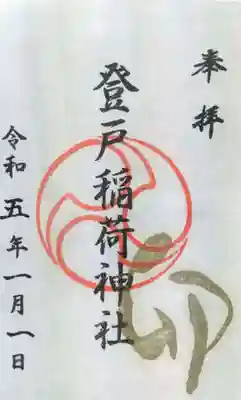 奉拝
登戸稲荷神社
卯
令和五年一月一日